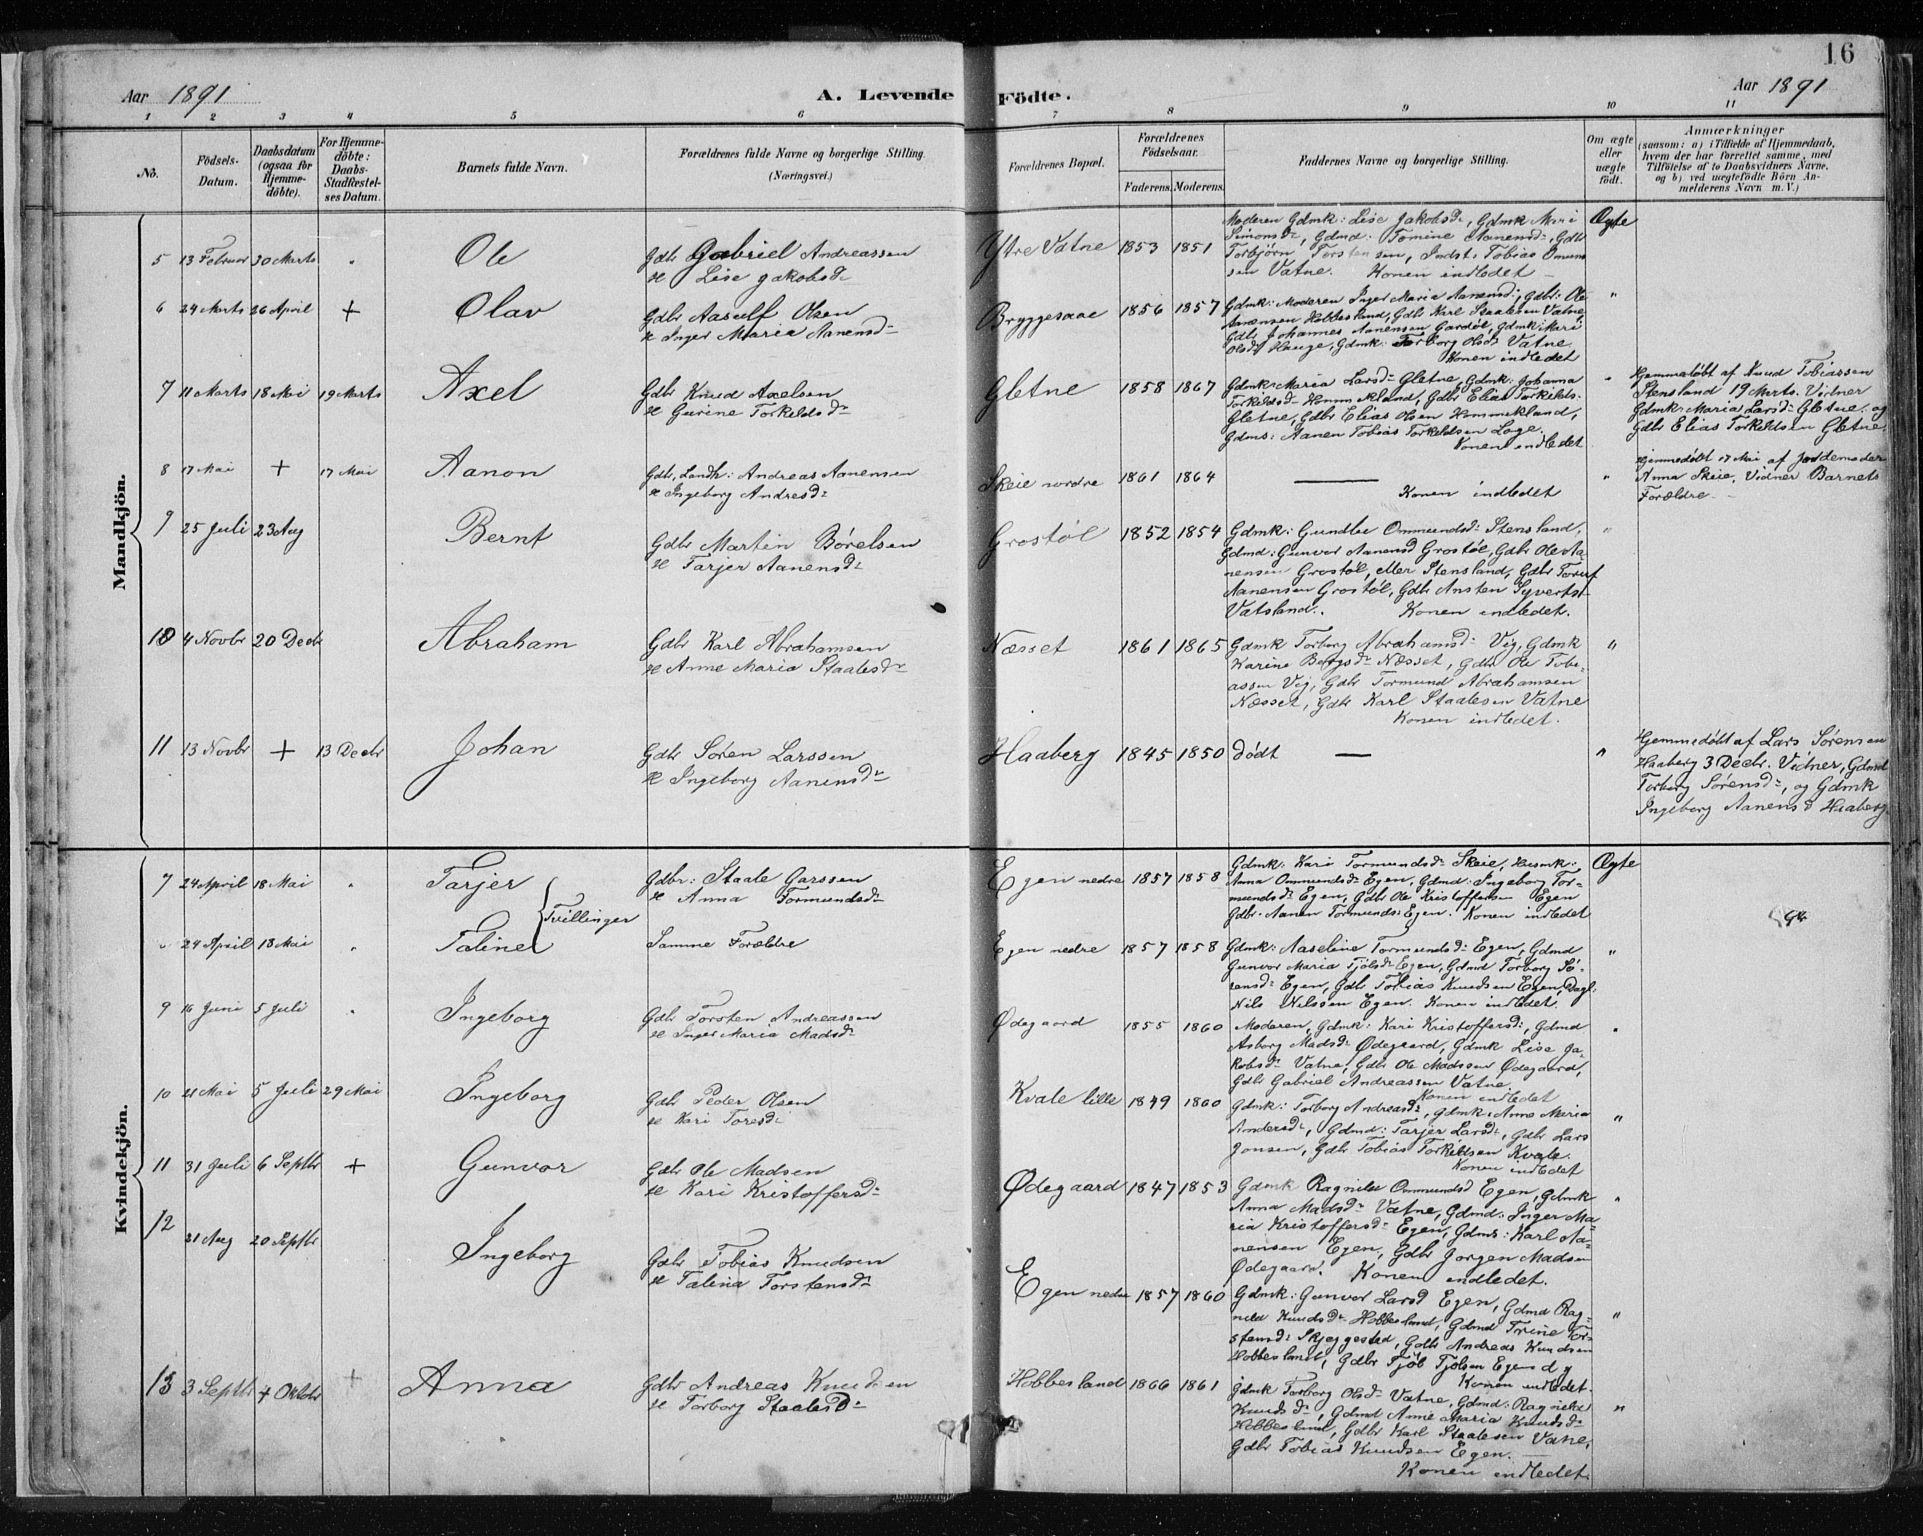 16
Aar 1891
A. Levende Födte.
Aar 1891
1 2 3 4 5 6 7 8 9 10 11
No.
Födsels-
Datum.
Daabsdatum
(ogsaa for
Hjemme-
döbte).
For Hjemme-
döbte:
Daabs-
Stadfæstel-
ses Datum.
Barnets fulde Navn.
Forældrenes fulde Navne og borgerlige Stilling.
(Næringsvei.)
Forældrenes Bopæl.
Forældrenes
Födselsaar.
Faderens. Moderens.
Faddernes Navne og borgerlige Stilling.
Om ægte
eller
uægte
født.
Anmærkninger
(saasom: a) i Tilfælde af Hjemmedaab,
hvem der har forrettet samme, med
Tilföielse af to Daabsvidners Navne,
og b) ved uægtefödte Börn An-
melderens Navn m. V.)
Mandkjön.
5 13 Februar 30 Marts " Ole
Gdbr Gabriel Andreassen
& Lise Jakobsd:
Ytre Vatne 1853 1851
Moderen Gdmk: Lise Jakobsd:, Gdmk Mari
Simonsd:, Gdmd: Tomine Aanensd:, Gdbr
Torbjörn Torstensen, Indst: Tobias Omund
sen Vatne. Konen indledet
Ægte
6 24 Marts 26 April + Olav
Gdbr Aasulf Olsen
& Inger Maria Aanensd:
Bryggesaae 1856 1857
Gdmk: Moderen Inger Maria Aanensd:, Gdbr: Ole
Aanensen Hobbesland, Gdbr Karl Staalesen Vatne,
Gdbr Johannes Aanensen Gardöl, Gdmk: Mari
Olsd: Hauge, Gdmk: Torborg Olsd: Vatne.
Konen indledet
"
7 11 Marts 18 Mai 19 Marts Axel
Gdbr Knud Axelsen
& Gurine Torkelds d:
Gletne 1858 1867
Gdmk: Maria Larsd: Gletne, Gdmk: Johanna
Torkildsd: Hommekland, Gdbr Elias Torkilds:
Gletne, Gdbr Elias Olsen Hommekland,
Gdms: Aanen Tobias Torkeldsen Loge.
Konen indledet
"
Hjemmedöbt af Knud Tobiassen
Stensland 19 Marts. Vidner
Gdmk: Maria Larsd: Gletne. og
Gdbr Elias Torkeldsen Gletne.
8 17 Mai + 17 Mai Aanon
Gdbr, Landh: Andreas Aanensen
& Ingeborg Andresd:
Skeie nordre 1861 1864
Konen indledet
"
Hjemmedöbt 17 Mai af Jordemoder
Anna Skeie. Vidner Barnets
Forældre
9 25 Juli 23 Aug Bernt
Gdbr Martin Börelsen
& Tarjer Aanensd:
Grostöl 1852 1854
Gdmk: Gundlei Ommundsd: Stensland,
Gdmd: Gunvor Aanensd Grostöl, Gdbr Ole Aa-
nensen Grostöl, eller Stensland, Gdbr Toruf
Aanensen Grostöl, Gdbr Ansten Syverts:
Vatsland. Konen indledet.
"
10 4 Novbr 20 Decbr Abraham
Gdbr Karl Abrahamsen
& Anne Maria Staalesd:
Næsset 1861 1865
Gdmk Torborg Abrahamsd: Vig, Gdmk
Karine Bergsd: Næsset, Gdbr Ole Tobi-
assen Vig, Gdbr Tormund Abrahamsen
Næsset, Gdbr Karl Staalesen Vatne
Konen indledet.
"
11 13 Novbr + 13 Decbr Johan
Gdbr Sören Larssen
& Ingeborg Aanensd:
Haaberg 1845 1850 dödt
"
Hjemmedöbt af Lars Sörensen
Haaberg 3 Decbr. Vidner, Gdmd
Torborg Sörensd:, og Gdmk
Ingeborg Aanensd Haaberg.
Kvindekjön.
7 24 April 18 Mai " Tarjer
Tvillinger
Gdbr: Staale Garssen
& Anna Tormundsd:
Egen nedre 1857 1858
Gdmk: Kari Tormundsd: Skeie, Husmk:
Anna Ommundsd: Egen, Gdmd: Ingeborg Tor-
mundsd: Egen, Gdbr Ole Kristoffersen Egen
Gdbr. Aanen Tormunds: Egen. Konen indledet
Ægte
24 April 18 Mai " Taline
Samme Forældre
Egen nedre 1857 1858
Gdmk: Aaseline Tormundsd: Egen, Gdmd
Gunvor Maria Tjölsd: Egen, Gdmd Torborg Sö-
rensd: Egen, Gdbr Tobias Knudsen Egen, Dagl:
Nils Nilssen Egen. Konen indledet
"
9 16 Juni 5 Juli " Ingeborg
Gdbr Torsten Andreassen
& Inger Maria Madsd:
Ødegaard 1855 1860
Moderen, Gdmk: Kari Kristoffersd:, Gdmd
Asborg Madsd: Ødegaard, Gdmk Lise Ja-
kobsd: Vatne, Gdbr Ole Madssen Ødegaard,
Gdbr Gabriel Andreassen Vatne.
Konen indledet
"
10 21 Mai 5 Juli 29 Mai Ingeborg
Gdbr Peder Olsen
& Kari Toresd:
Kvale lille 1849 1860
Gdmk: Torborg Andreasd:, Gdmk: Anne Maria
Andersd:, Gdmd: Tarjer Larsd:, Gdbr Lars
Jonsen, Gdbr Tobias Torkeldsen Kvale.
Konen indledet
"
11 31 Juli 6 Septbr + Gunvor
Gdbr Ole Madsen
& Kari Kristoffersd:
Ødegaard 1847 1853
Gdmk Ragnild Ommundsd Egen, Gdmk
Anna Madsd: Vatne, Gdmd: Inger Ma-
ria Kristoffersd: Egen, Gdms: Karl Aa-
nensen Egen, Gdbr Jörgen Madsen
Ødegaard. Konen indledet.
"
12 21 Aug 20 Septbr Ingeborg
Gdbr Tobias Knudsen
& Talina Torstensd:
Egen nedre 1857 1860
Gdmk: Gunvor Larsd Egen, Gdmd Rag-
nild Knudsd: Hobbesland, Gdmd Trine Tor-
stensd: Skjeggestad, Gdbr Andreas Knudsen
Hobbesland, Gdbr Tjöl Tjölsen Egen
Konen indledet.
"
13 3 Septbr 4 Oktobr + Anna
Gdbr Andreas Knudsen
& Torborg Staalesd:
Hobbesland 1866 1861
Gdmk Torborg Olsd: Vatne, Gdmd: Ragnild
Knudsd:, Gdmd Anne Maria Knudsd:
Hobbesland, Gdbr Karl Staalesen Vatne,
Gdbr Tobias Knudsen Egen.
Konen indledet.
"